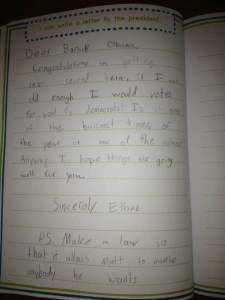 I can write a letter to the president
Dear Barak Obama,
Congratulations on getting
into second term. If I
old enough I would vote
for you! Go Democrats! Is it one
of the busiest times of
the year or one of the
Anyway I hope things are going
well for you.
Sincerely Ethan
P.S. Make a law so
that it allows Matt to
anybody he wants